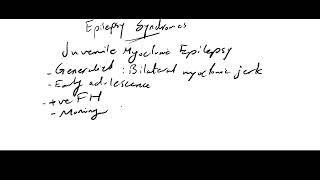 Epilepsy Syndromes
Juvenile Myoclonic Epilepsy
- Generalized : Bilateral myoclonic jerk
- Early adolescence
- +ve FH
- Morning